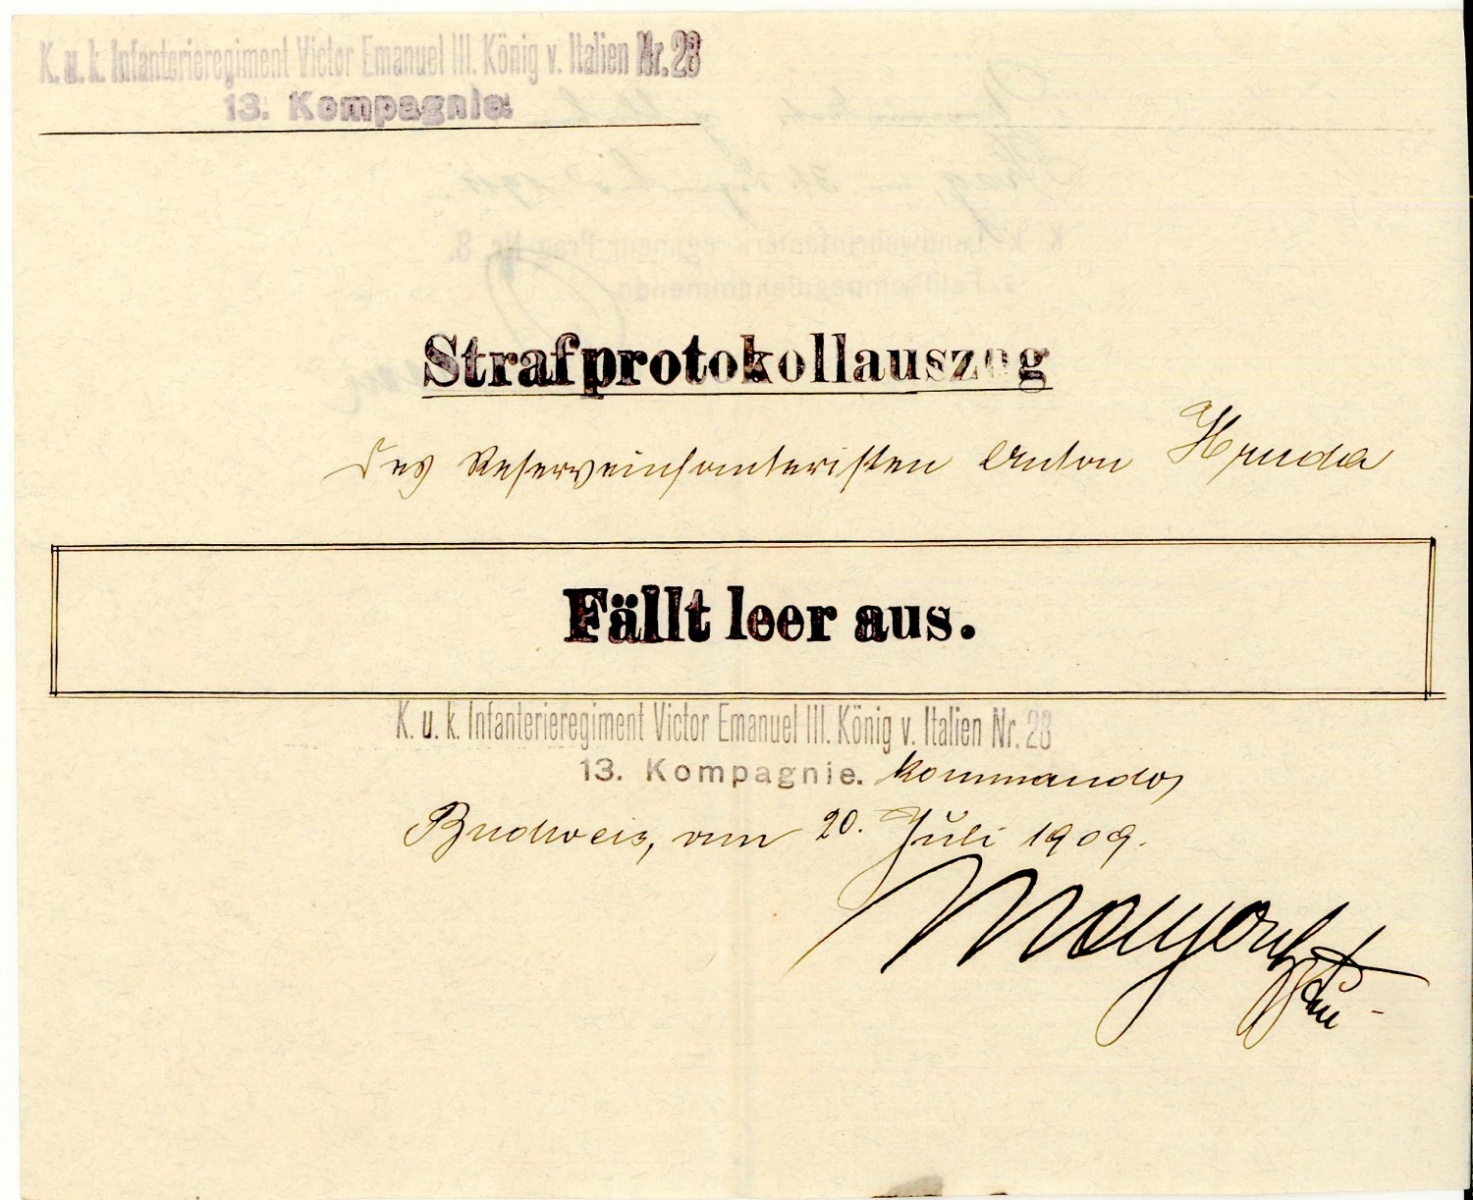 K. u. k. Infanterieregiment Victor Emanuel III. König v. Italien Nr. 28
13. Kompagnie.
Strafprotokollauszug
des Reserveinfanteristen Anton Hruda
Fällt leer aus.
K. u. k. Infanterieregiment Victor Emanuel III. König v. Italien Nr. 28
13. Kompagnie. kommando,
Budweis, am 20. Juli 1909.